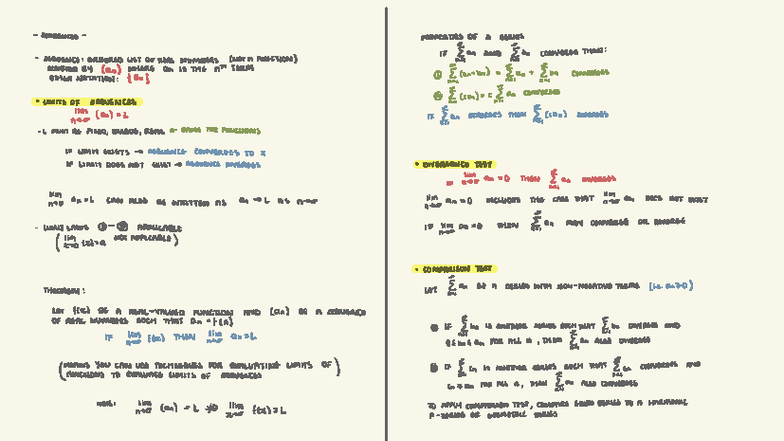 - SEQUENCES -
- SEQUENCE: ORDERED LIST OF REAL NUMBERS (NOT A FUNCTION)
DENOTED BY {an} WHERE an IS THE nTH TERM
OTHER NOTATION: {an}
• LIMITS OF SEQUENCES
lim n→∞ (an) = L
- L MUST BE FIXED, UNIQUE, REAL → SAME FOR FUNCTIONS
IF LIMIT EXISTS → SEQUENCE CONVERGES TO
IF LIMIT DOES NOT EXIST → SEQUENCE DIVERGES
lim n→∞ an = L CAN ALSO BE WRITTEN AS an → L AS n→∞
- LIMIT LAWS APPLICABLE
NOT APPLICABLE)
THEOREM:
LET f(x) BE A REAL-VALUED FUNCTION AND {an} BE A SEQUENCE
OF REAL NUMBERS SUCH THAT an = f(n)
IF lim f(x) THEN lim n→∞ an = L
(MEANS YOU CAN USE TECHNIQUES FOR EVALUATING LIMITS OF
FUNCTIONS TO EVALUATE LIMITS OF SEQUENCES)
NOTE: lim n→∞ (an) = L lim x→∞ f(x) = L
PROPERTIES OF A SERIES
IF ∑ an AND ∑ bn CONVERGE THEN:
① ∑ (an+bn) = ∑ an + ∑ bn CONVERGES
② ∑ (can) = c ∑ an CONVERGES
IF ∑ an DIVERGES THEN ∑ (can) DIVERGES
• DIVERGENCE TEST
IF lim n→∞ an THEN ∑ an DIVERGES
lim n→∞ an INCLUDES THE CASE THAT lim n→∞ an DOES NOT EXIST
IF lim n→∞ an = 0 THEN ∑ an MAY CONVERGE OR DIVERGE
• COMPARISON TEST
LET ∑ an BE A SERIES WITH NON-NEGATIVE TERMS (i.e. an≥0)
IF ∑ bn IS ANOTHER SERIES SUCH THAT ∑ bn DIVERGES AND
FOR ALL n, THEN ∑ an ALSO DIVERGES
IF ∑ IS ANOTHER SERIES SUCH THAT ∑ CONVERGES AND
FOR ALL n, THEN ∑ an ALSO CONVERGES
TO APPLY COMPARISON TEST, COMPARE GIVEN SERIES TO A HARMONIC,
P-SERIES OR GEOMETRIC SERIES